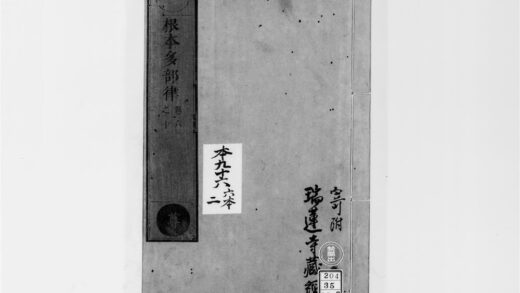 根本多部律
卷六
之十
本九十六
六本
二
寄附
瑞蓮寺藏經
204
35